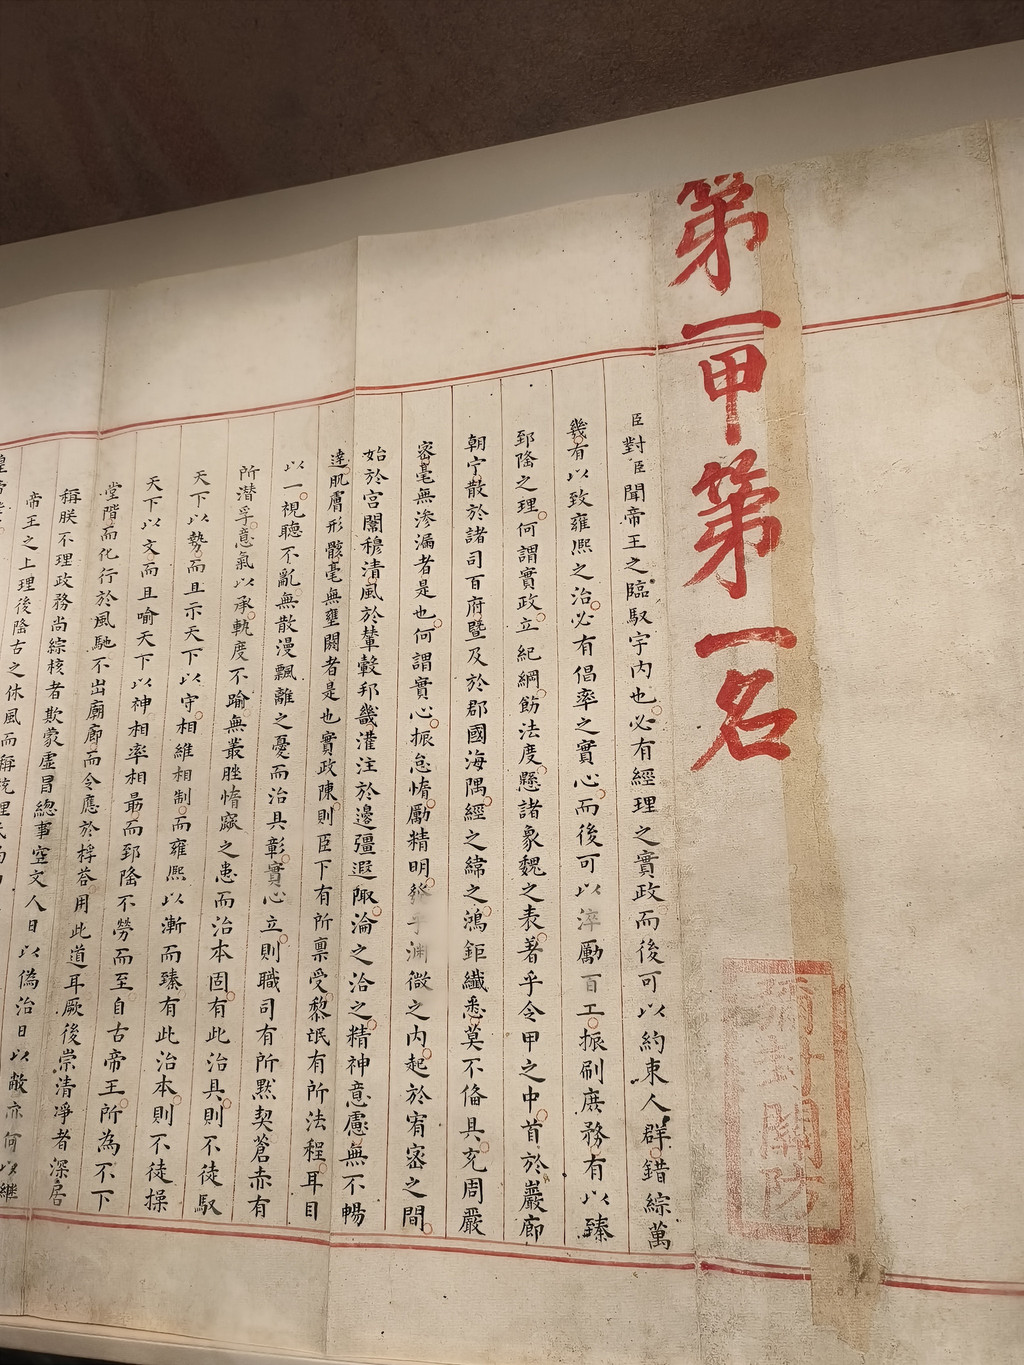 第一甲第一名
臣對臣聞帝王之臨馭宇內也必有經理之實政而後可以約束人群錯綜萬
幾有以致雍熙之治必有倡率之實心而後可以淬勵百工振刷庶務有以臻
郅隆之理何謂實政立紀綱飭法度懸諸象魏之表著乎令甲之中首於巖廊
朝宁散於諸司百府暨及於郡國海隅經之緯之鴻鉅纖悉莫不偹具充周嚴
密毫無滲漏者是也何謂實心振怠惰勵精明發乎淵微之內起於宥密之間
始於宮闈穆清風於輦轂邦畿灌注於邊疆遐陬淪之洽之精神意慮無不暢
達肌膚形骸毫無壅閼者是也實政陳則臣下有所禀受黎氓有所法程耳目
以一視聽不亂無散漫飄離之憂而治具彰實心立則職司有所默契蒼赤有
所潛孚意氣以承軌度不踰無叢脞惰窳之患而治本固有此治具則不徒馭
天下以勢而且示天下以守相維相制而雍熙以漸而臻有此治本則不徒操
天下以文而且喻天下以神相率相最而郅隆不勞而至自古帝王所為不下
堂階而化行於風馳不出廟廊而令應於桴荅用此道耳厥後崇清凈者深居
稱朕不理政務尚綜核者欺蒙虛冒總事空文人日以偽治日以敝亦何以繼
帝王之上理後隆古之休風而稱